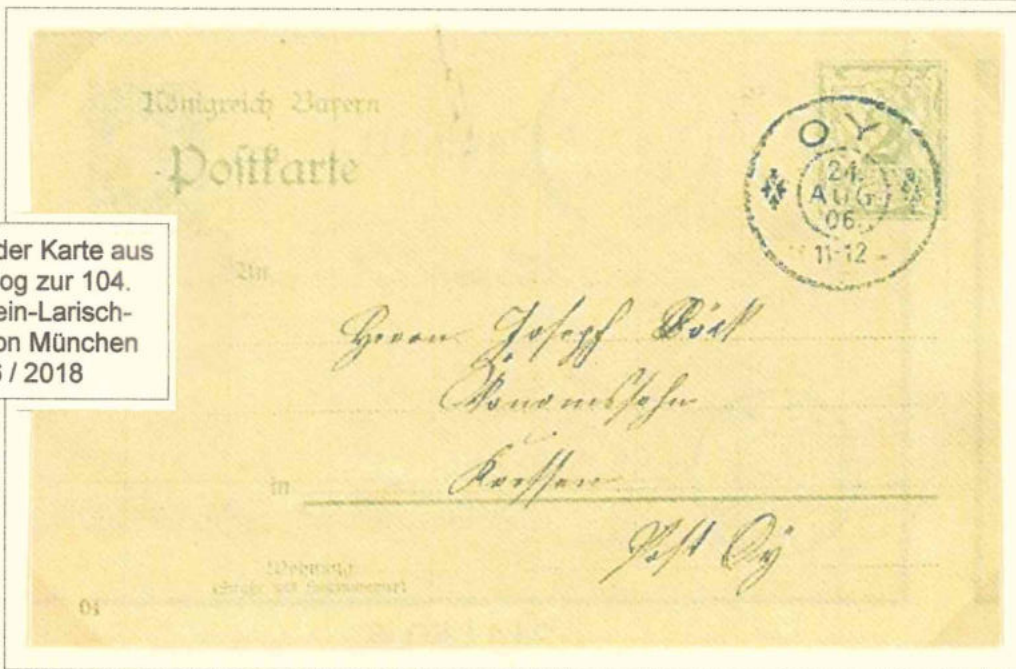 Königreich Bayern
Postkarte
OY
24.
AUG.
06.
11-12
der Karte aus
og zur 104.
ein-Larisch-
on München
6 / 2018
An
Herrn Joseph
in
Post Oy
Wohnung
(Straße und Hausnummer)
04